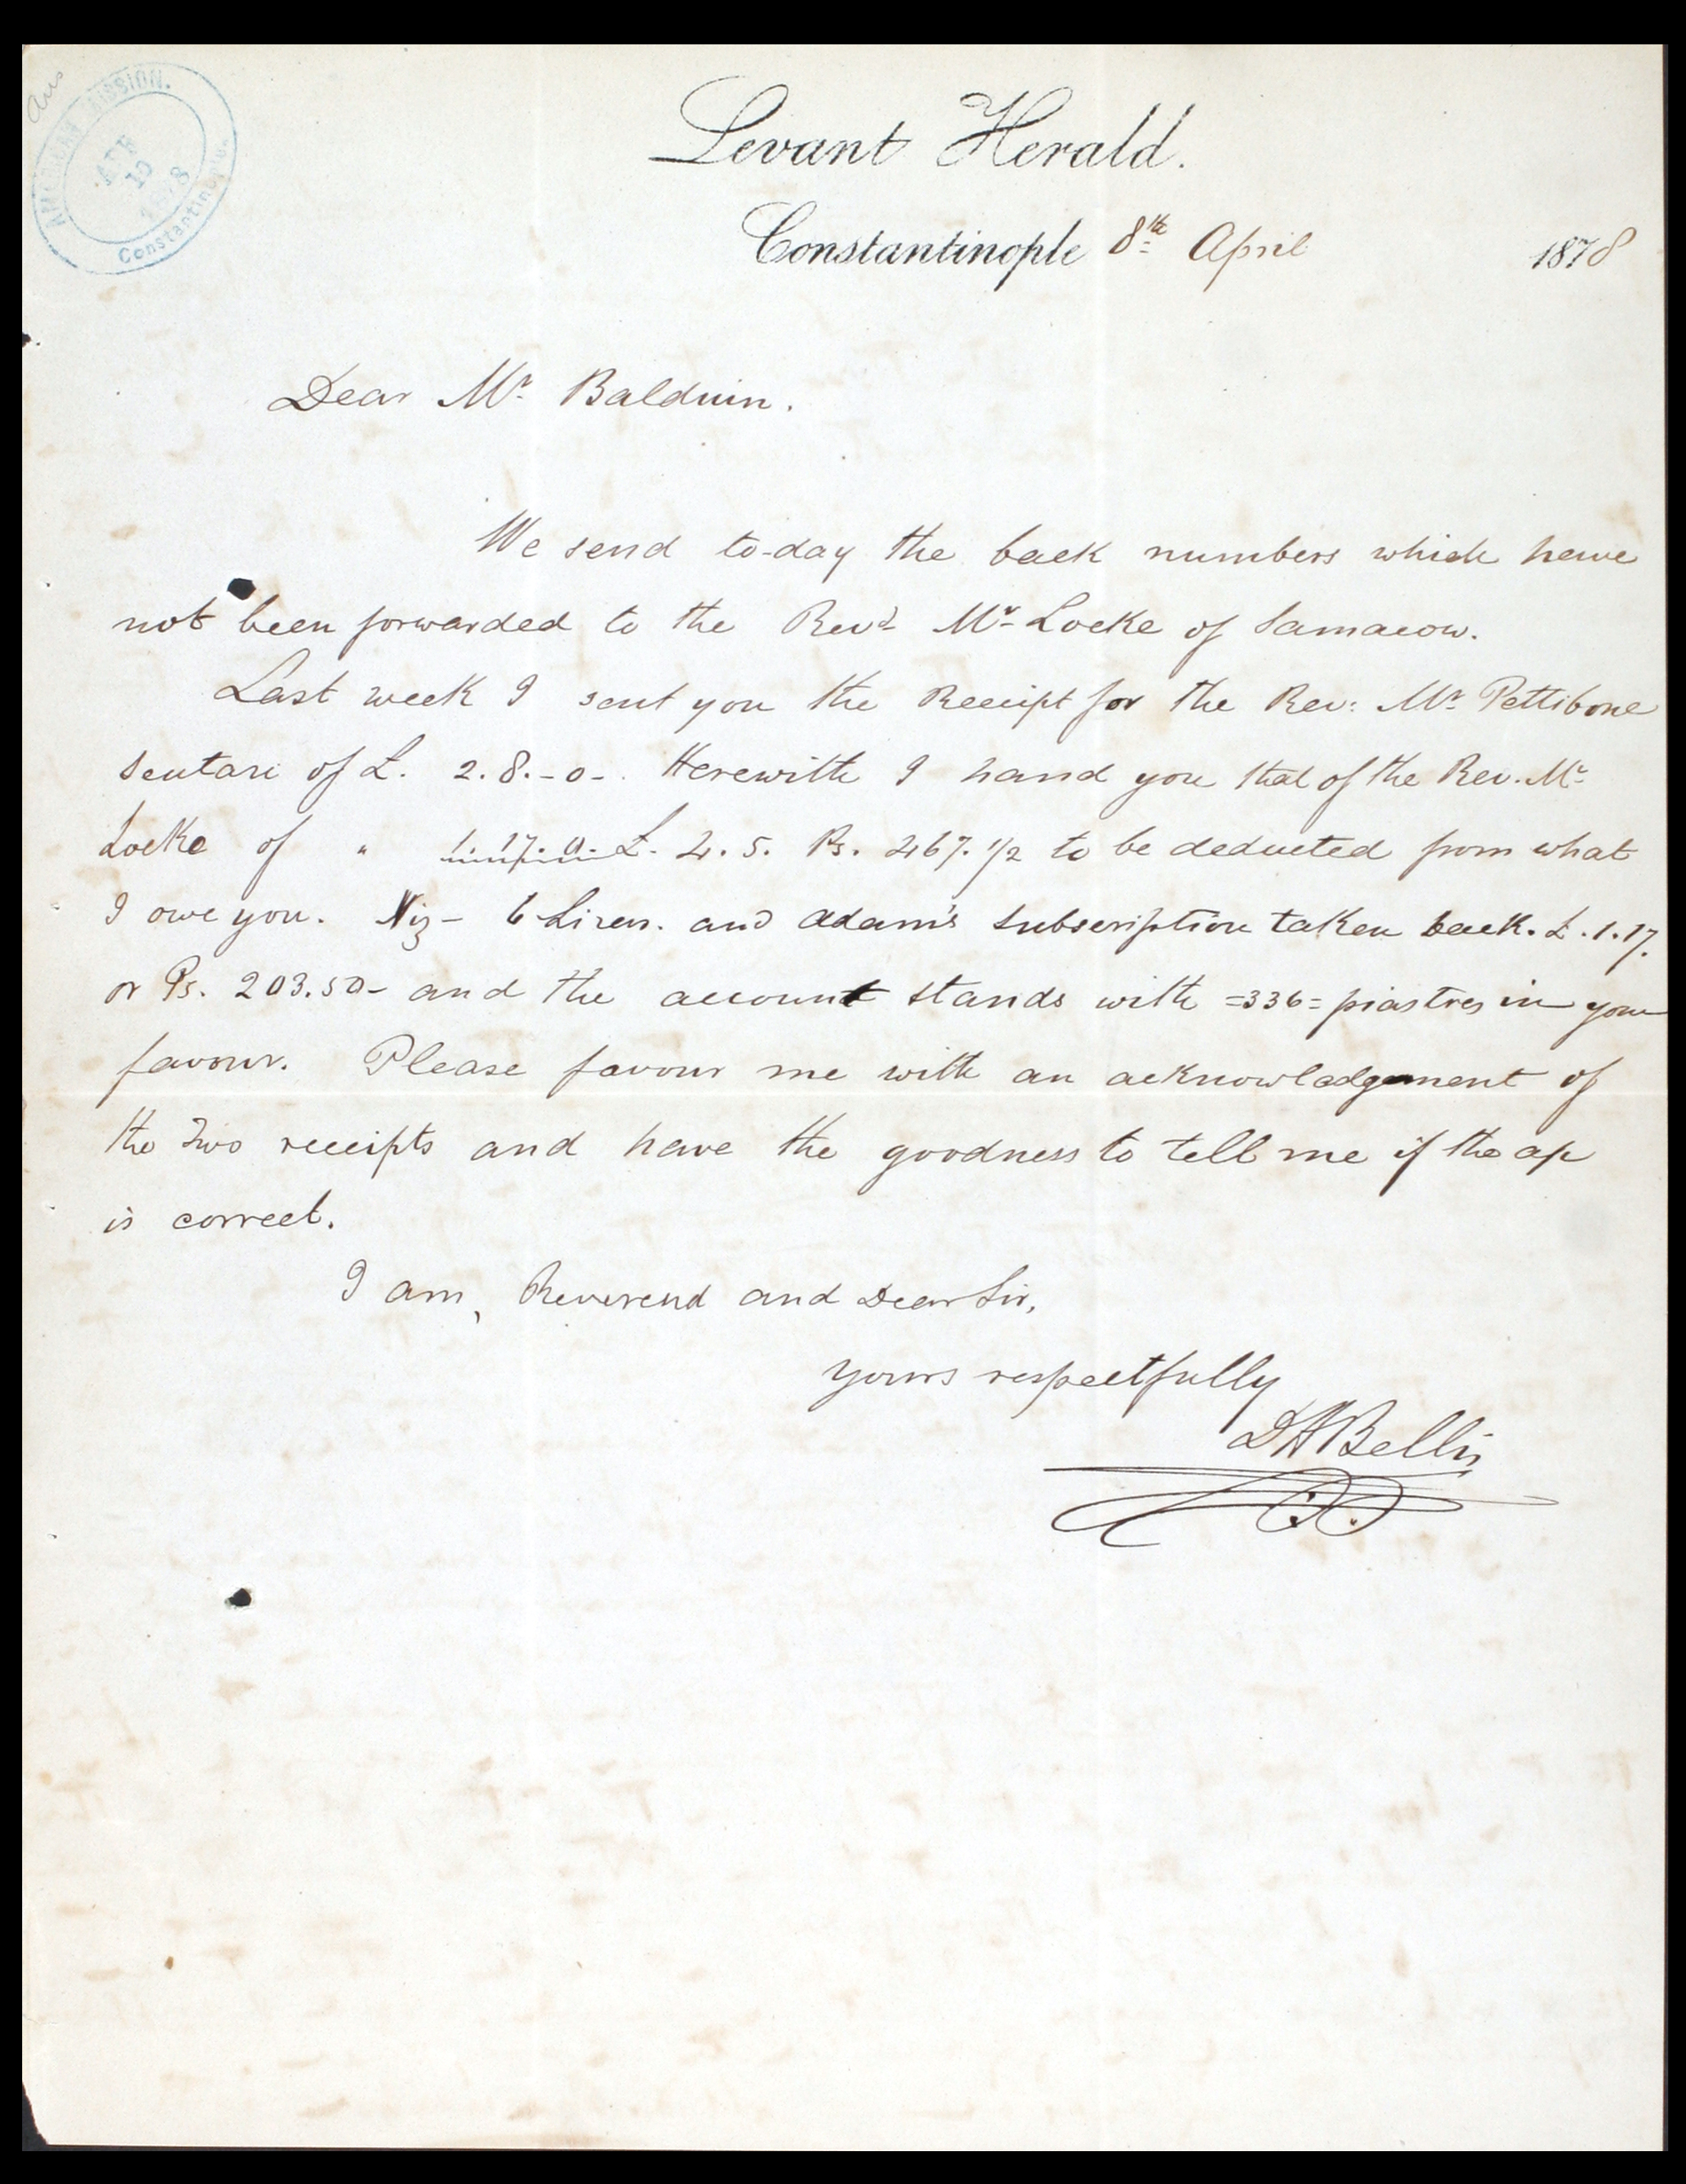 ans
AMERICAN MISSION.
APR
10
1878
Constantinople.
Levant Herald.
Constantinople 8th April 1878
Dear Mr. Balduin.
We send to-day the back numbers which have
not been forwarded to the Revd Mr Locke of Samacow.
Last week I sent you the Receipt for the Rev: Mr. Pettibone
Scutari of L. 2.8.-0-. Herewith I hand you that of the Rev. Mr.
Locke of " 1.17.0. L. 2.5. Ps. 267.1/2 to be deducted from what
I owe you. Viz- 6 Liren. and Adam's subscription taken back. L.1.17.
or Ps. 203.50- and the account stands with =336= piastres in your
favour. Please favour me with an acknowledgement of
the two receipts and have the goodness to tell me if the a/c
is correct.
I am, Reverend and Dear Sir,
yours respectfully
Bellis